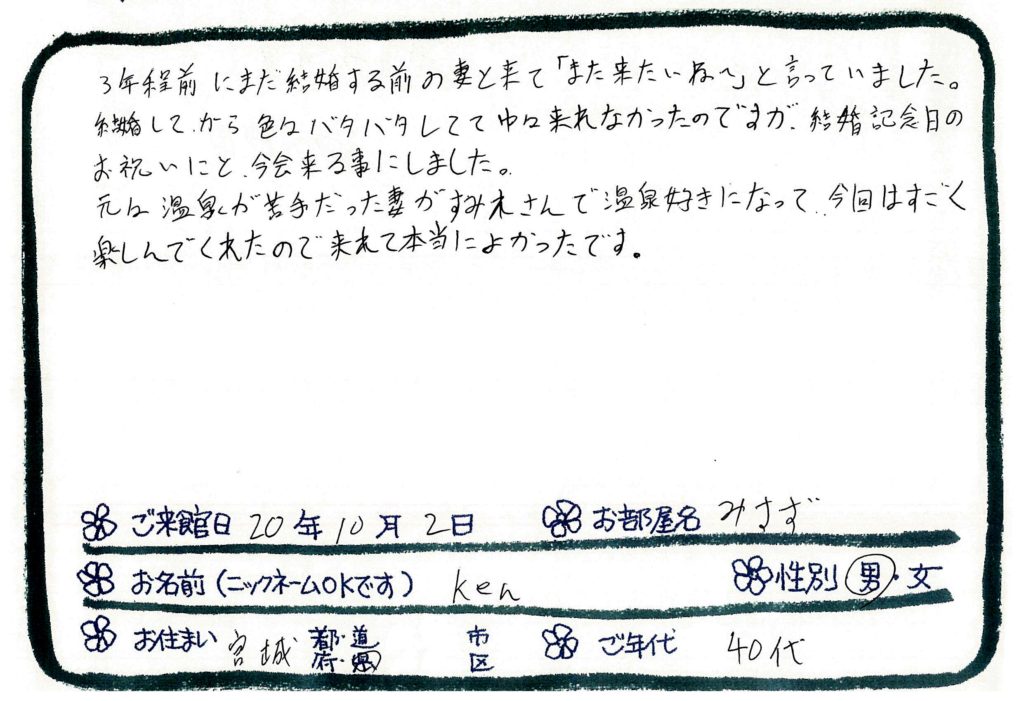 3年程前にまだ結婚する前の妻と来て「また来たいね〜」と言っていました。
結婚して、から色々バタバタしてて中々来れなかったのですが、結婚記念日の
お祝いにと、今会来る事にしました。
元々温泉が苦手だった妻がすみれさんで温泉好きになって、今回はすごく
楽しんでくれたので来れて本当によかったです。
ご来館日 20年10月2日 お部屋名 みすず
お名前(ニックネームOKです) ken 性別 男・女
お住まい 宮城 都・道 府・県 市 区 ご年代 40代